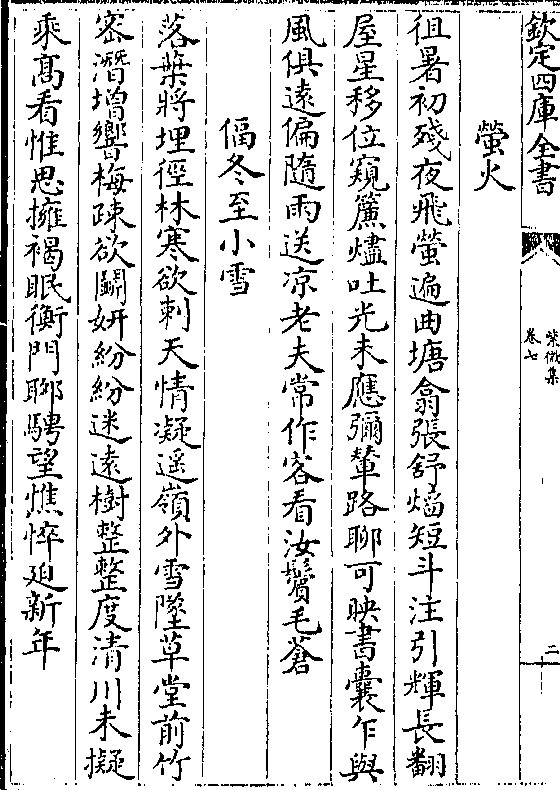 欽定四庫全書
紫微集
卷七
二
螢火
徂暑初殘夜飛螢遍曲塘翕張舒熖短斗注引輝長翻
屋星移位窺簾燼吐光未應彌輦路聊可映書囊乍與
風俱遠偏隨雨送凉老夫常作客看汝鬢毛蒼
偪冬至小雪
落葉將埋徑林寒欲刺天情凝遥嶺外雪墜草堂前竹
密潛增響梅疎欲鬭妍紛紛迷遠樹整整度清川未擬
乘髙看惟思擁褐眠衡門聊騁望憔悴廹新年